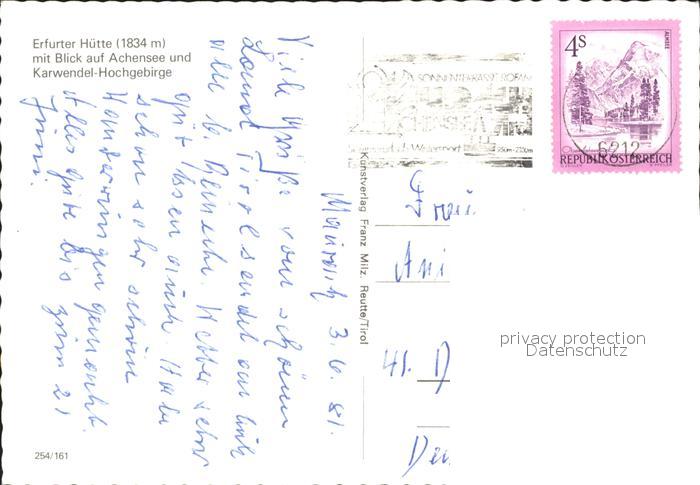 Erfurter Hütte (1834 m)
mit Blick auf Achensee und
Karwendel-Hochgebirge
Maurach 3. 6. 81.
Viele Grüße vom schönen
Lande Tirol sendet
alle Wetter sehr
gut Essen auch. Habe
schon sehr schöne
Wanderungen gemacht.
Alles Gute bis zum 21
Juni.
254/161
Kunstverlag Franz Milz, Reutte/Tirol
4S
ALMSEE
6212
REPUBLIK ÖSTERREICH
Frau
Ani
41. D
privacy protection
Datenschutz